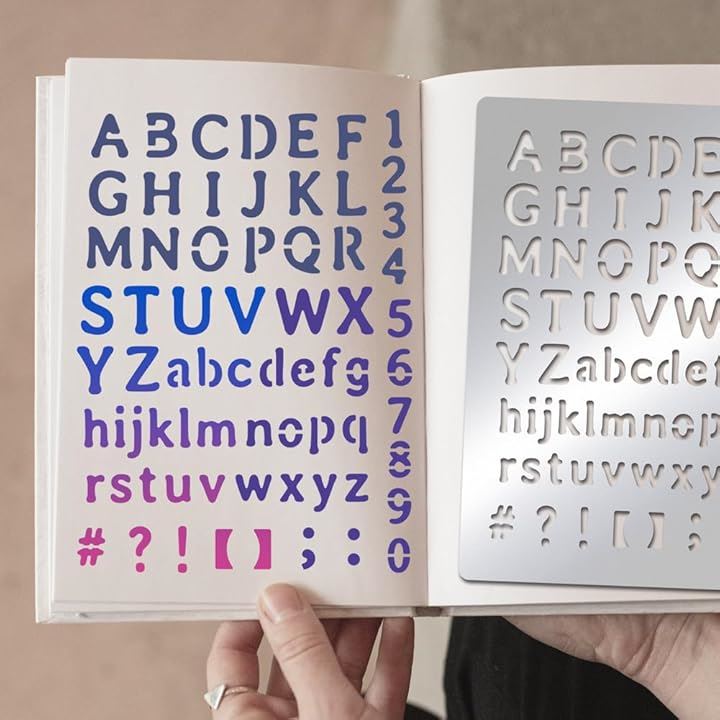 ABCDEF
GHIJKL
MNOPQR
STUVWX
YZabcdefg
hijklmnopq
rstuvwxyz
#?!【】;:
1
2
3
4
5
6
7
8
9
0
ABCDE
GHIJK
MNOPQ
STUVW
YZabcdef
hijklmnop
rstuvwxy
#?!【】;